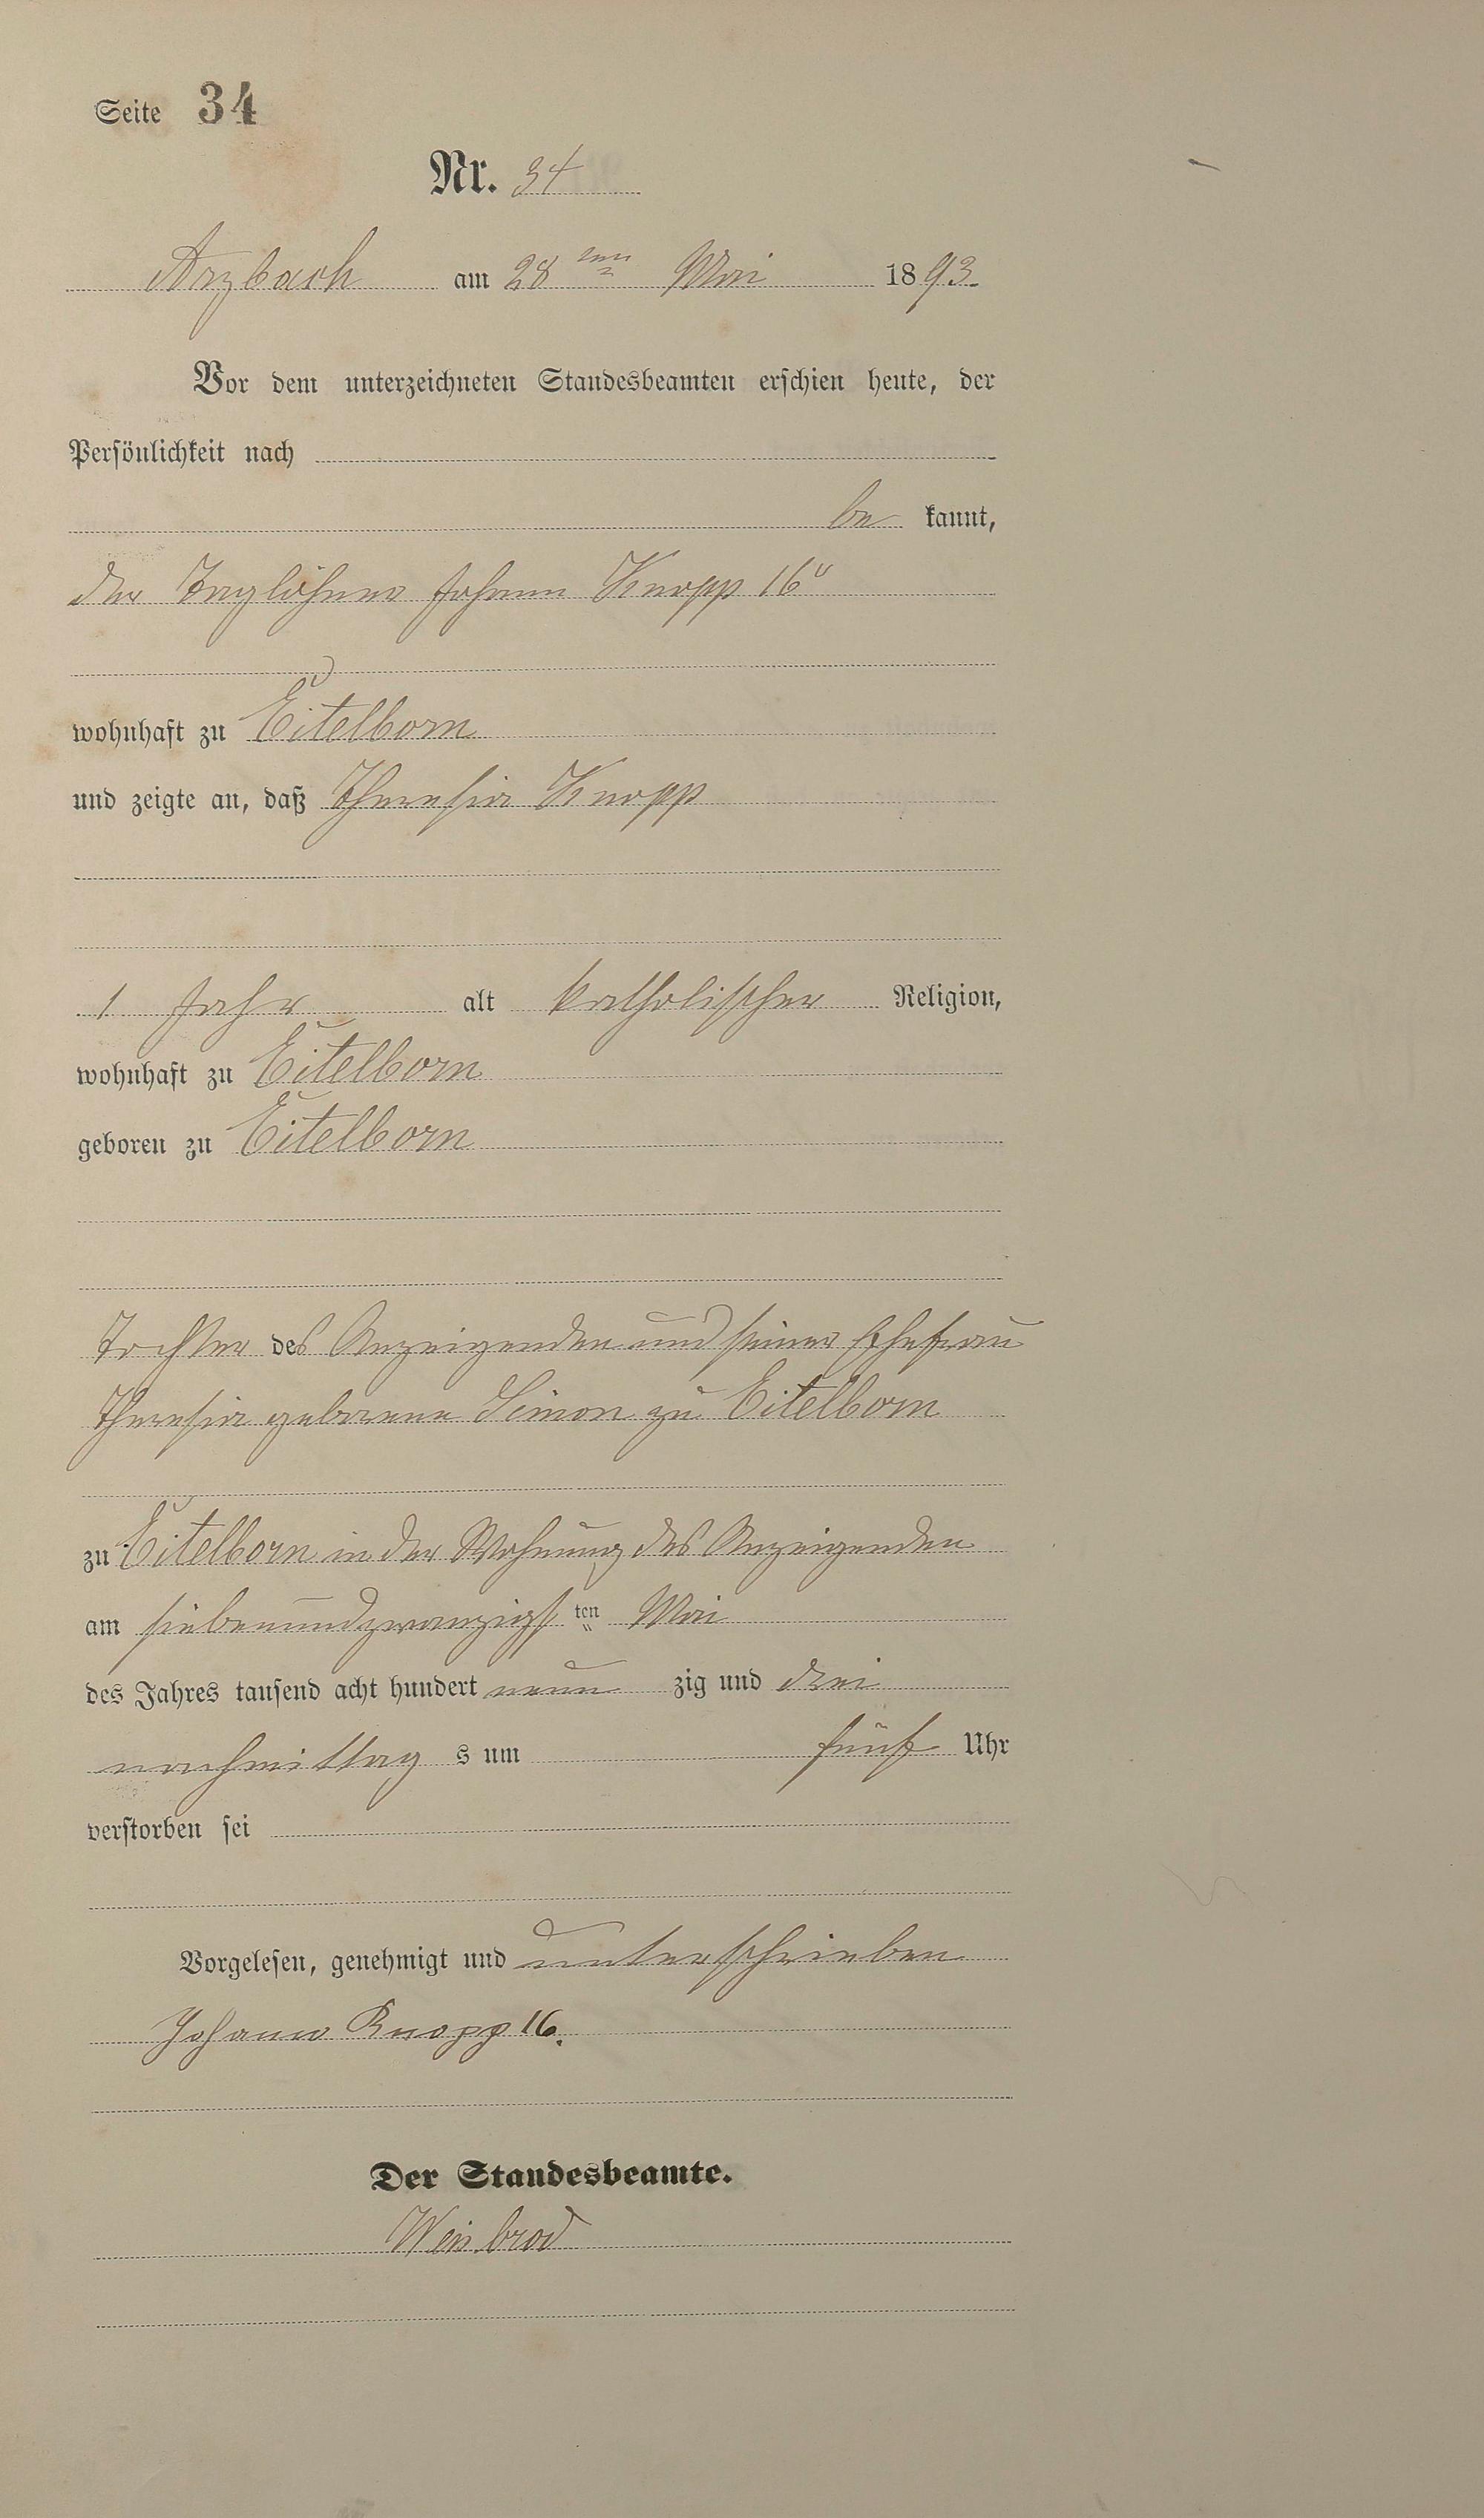 Seite 34
Nr. 34
Arzbach am 28ten Mai 1893.
Vor dem unterzeichneten Standesbeamten erschien heute, der
Persönlichkeit nach
be kannt,
der Taglöhner Johann Knopp 16r
wohnhaft zu Eitelborn
und zeigte an, daß Theresia Knopp
1 Jahr alt katholischer Religion,
wohnhaft zu Eitelborn
geboren zu Eitelborn
Tochter des Anzeigenden und seiner Ehefrau
Theresia geborene Simon zu Eitelborn
zu Eitelborn in der Wohnung des Anzeigenden
am siebenundzwanzigsten Mai
des Jahres tausend acht hundert neun zig und drei
nachmittag s um fünf Uhr
verstorben sei
Vorgelesen, genehmigt und unterschrieben
Johann Knopp 16.
Der Standesbeamte.
Weisbrod